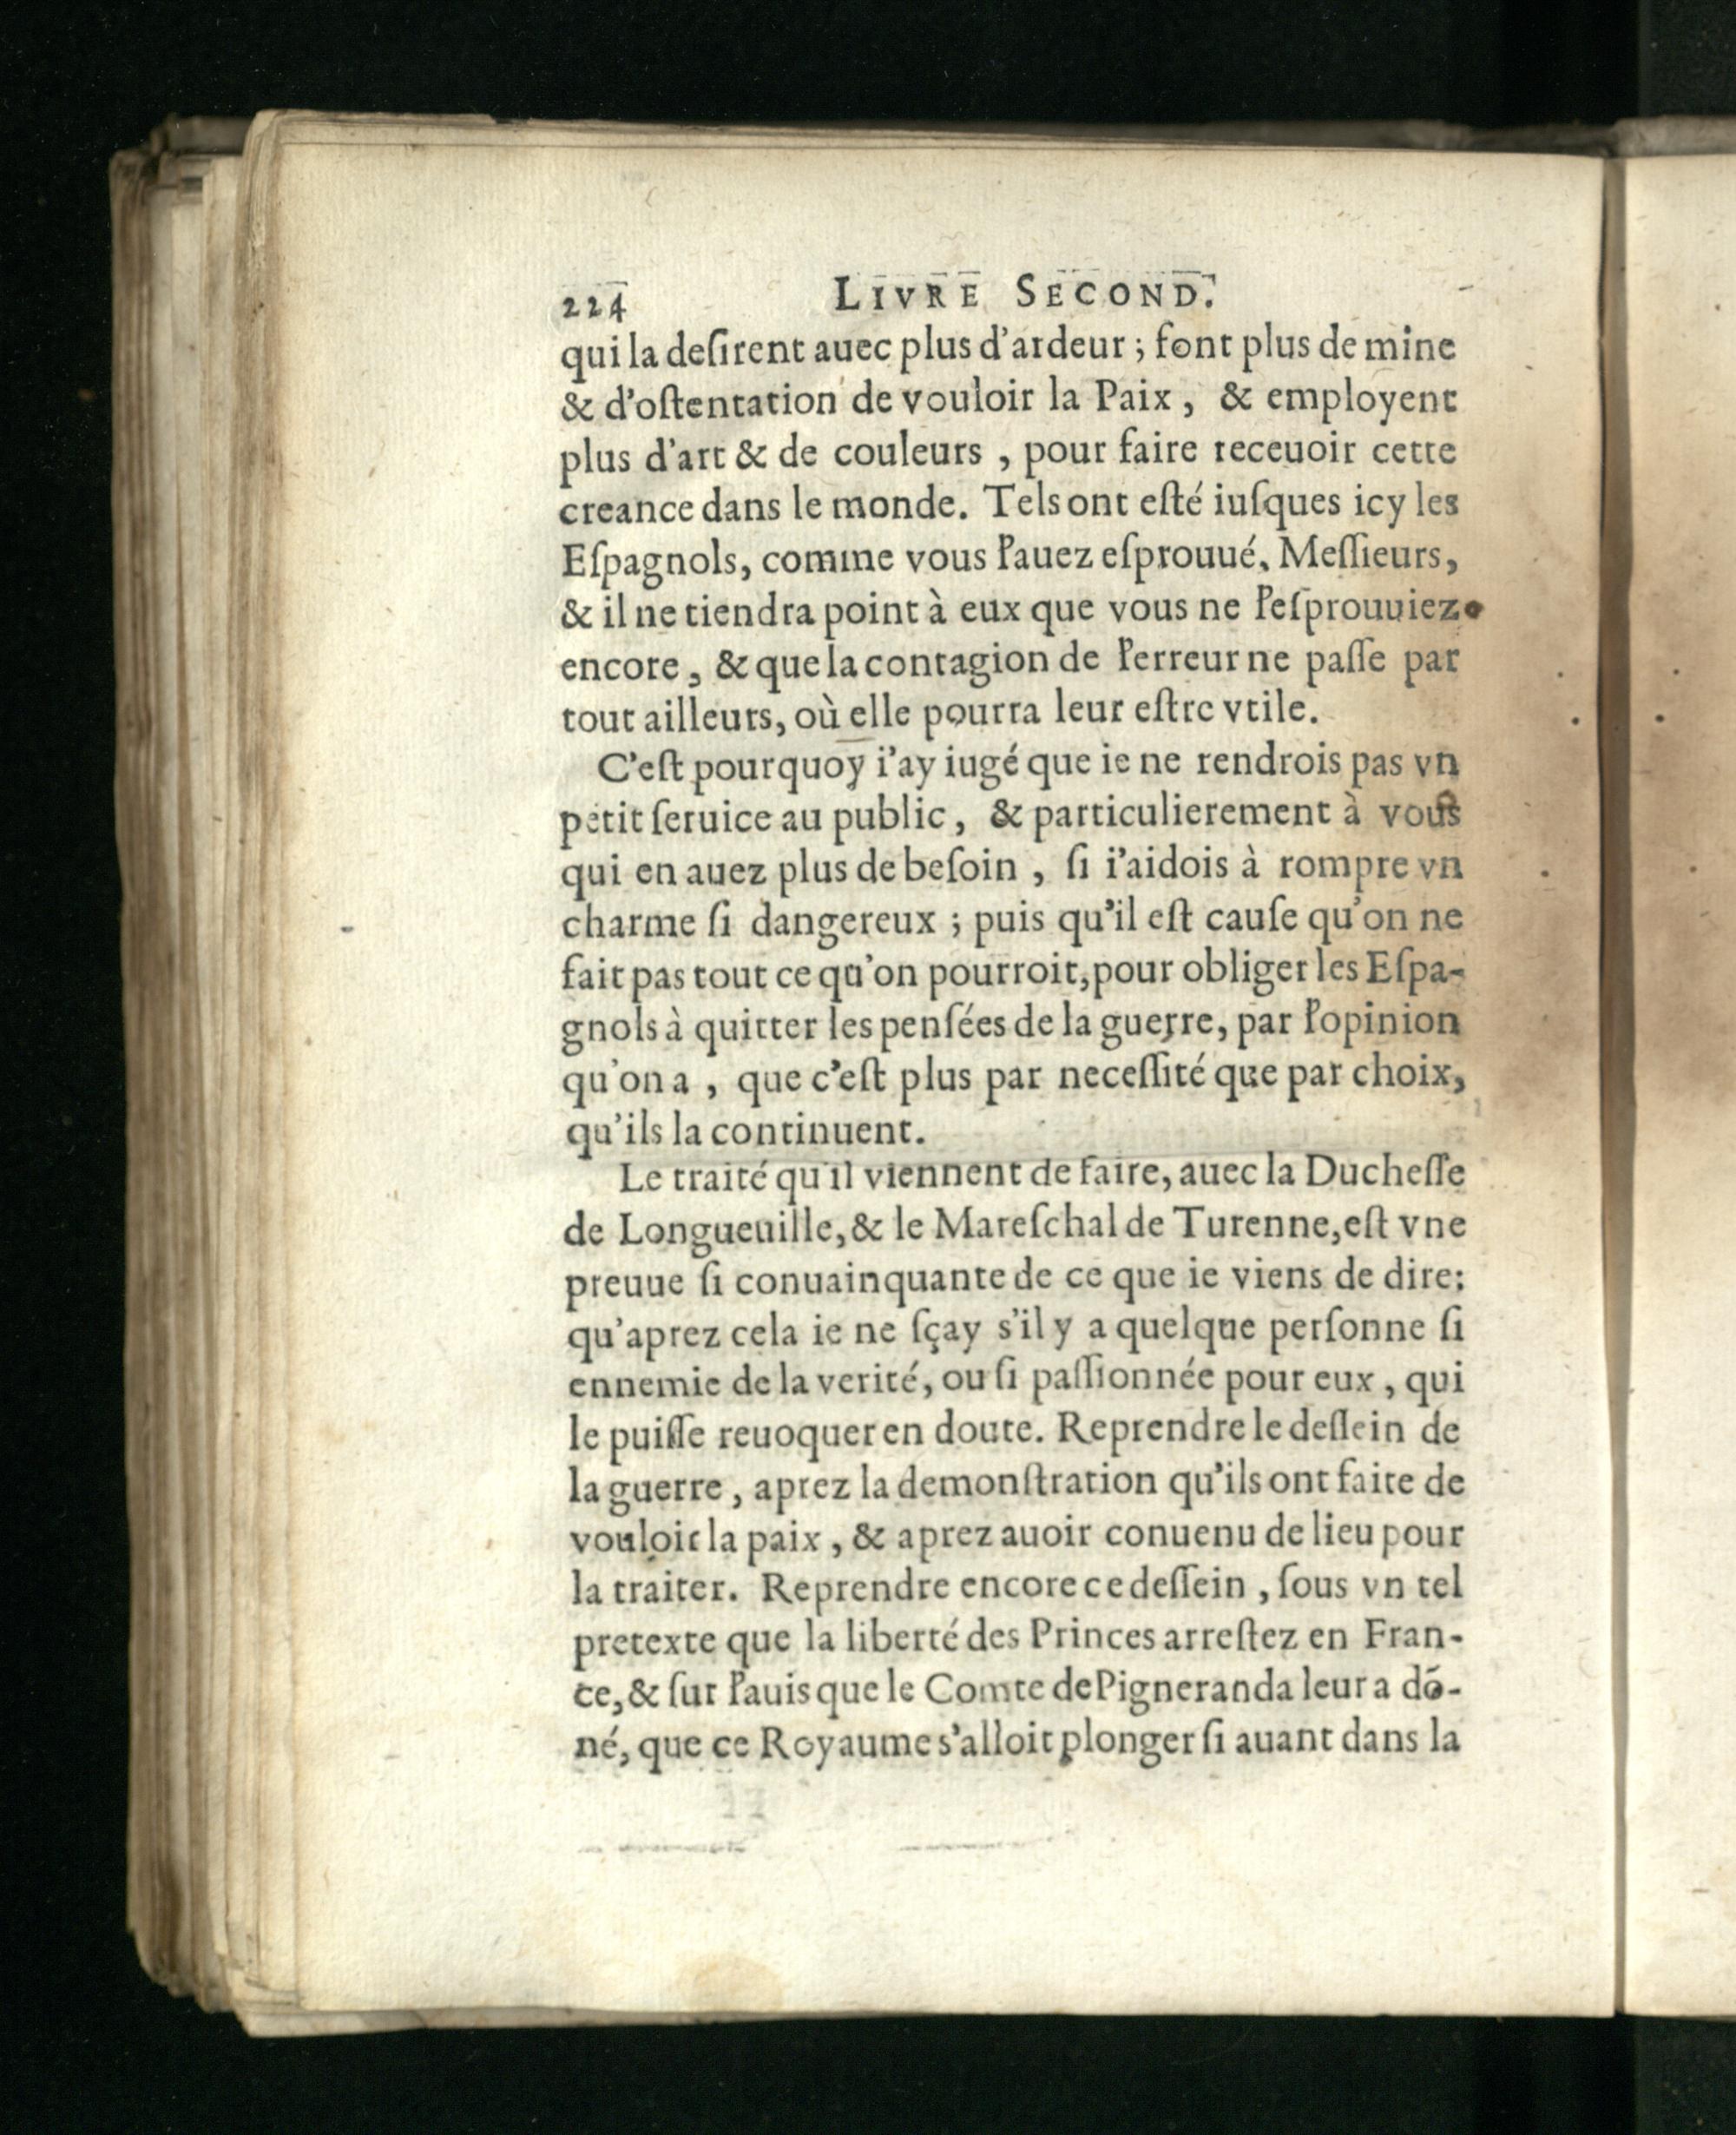 224 LIVRE SECOND.
qui la deſirent auec plus d'ardeur ; font plus de mine
& d'oſtentation de vouloir la Paix, & employent
plus d'art & de couleurs, pour faire receuoir cette
creance dans le monde. Tels ont eſté iuſques icy les
Eſpagnols, comme vous l'auez eſprouué, Meſſieurs,
& il ne tiendra point à eux que vous ne l'eſprouuiez
encore, & que la contagion de l'erreur ne paſſe par
tout ailleurs, où elle pourra leur eſtre vtile.
C'eſt pourquoy i'ay iugé que ie ne rendrois pas vn
petit ſeruice au public, & particulierement à vous
qui en auez plus de beſoin, ſi i'aidois à rompre vn
charme ſi dangereux ; puis qu'il eſt cauſe qu'on ne
fait pas tout ce qu'on pourroit, pour obliger les Eſpa-
gnols à quitter les penſées de la guerre, par l'opinion
qu'on a, que c'eſt plus par neceſſité que par choix,
qu'ils la continuent.
Le traité qu'il viennent de faire, auec la Ducheſſe
de Longueuille, & le Mareſchal de Turenne, eſt vne
preuue ſi conuainquante de ce que ie viens de dire:
qu'aprez cela ie ne ſçay s'il y a quelque perſonne ſi
ennemie de la verité, ou ſi paſſionnée pour eux, qui
le puiſſe reuoquer en doute. Reprendre le deſſein de
la guerre, aprez la demonſtration qu'ils ont faite de
vouloir la paix, & aprez auoir conuenu de lieu pour
la traiter. Reprendre encore ce deſſein, ſous vn tel
pretexte que la liberté des Princes arreſtez en Fran-
ce, & ſur l'auis que le Comte de Pigneranda leur a dõ-
né, que ce Royaume s'alloit plonger ſi auant dans la